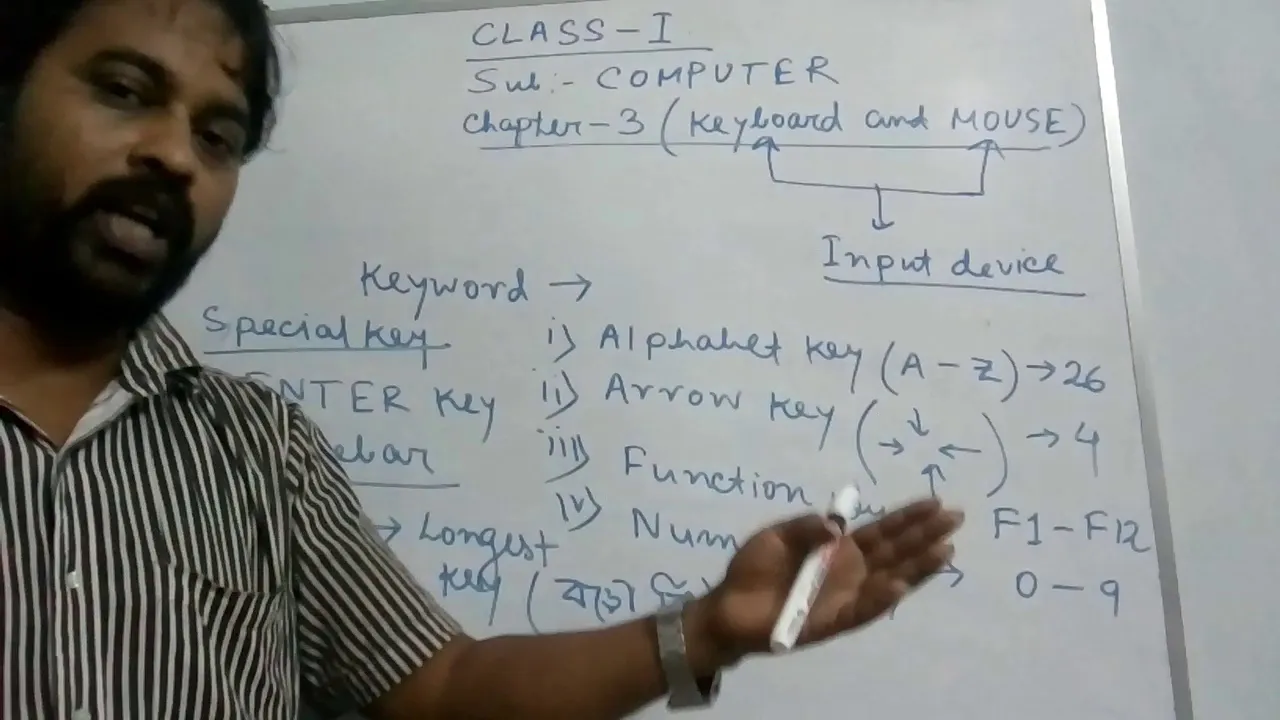 CLASS-I
Sub:- COMPUTER
Chapter-3 (Keyboard and MOUSE)
Input device
Keyword →
Special Key
ENTER Key
→ Longest
Key (বড়ো
i) Alphabet Key (A-Z) → 26
ii) Arrow Key (→ ↓ ← ↑) → 4
iii) Function F1-F12
iv) Num → 0-9